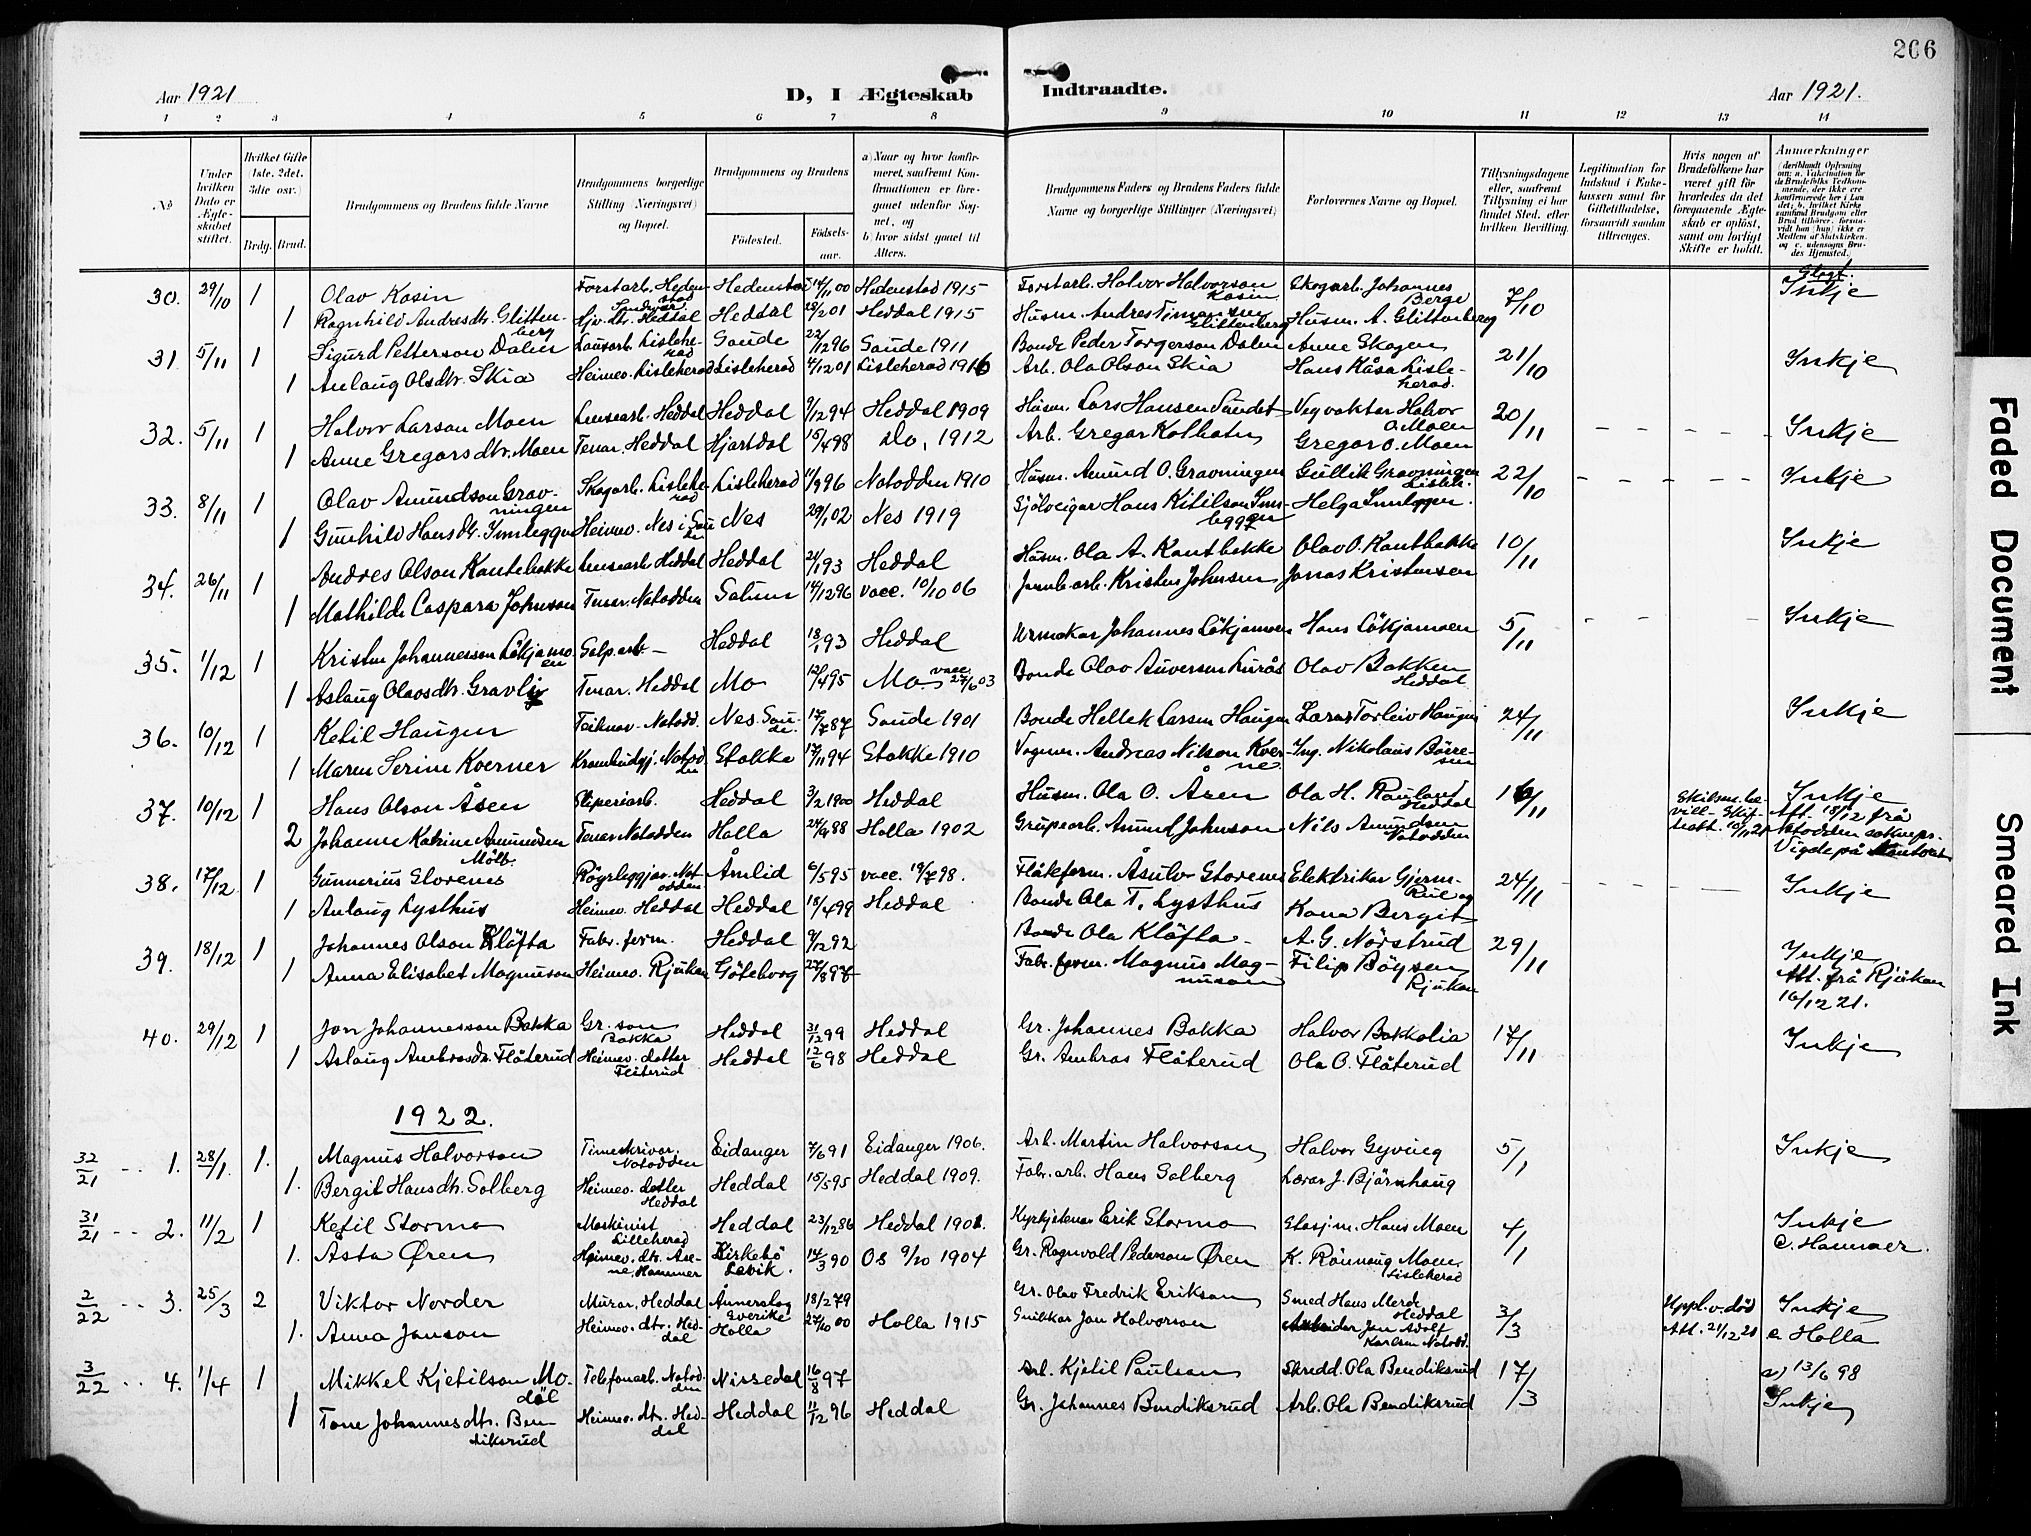 206
Aar 1921
D, I Ægteskab Indtraadte.
Aar 1921.
1 2 3 4 5 6 7 8 9 10 11 12 13 14
No
Under hvilken Dato er Ægteskabet stiftet.
Hvilket Gifte (1ste, 2det, 3die osv.)
Brdg. Brud.
Brudgommens og Brudens fulde Navne
Brudgommens borgerlige Stilling (Næringsvei) og Bopæl.
Brudgommens og Brudens
Fødested.
Fødselsaar.
a) Naar og hvor konfirmeret, saafremt Konfirmationen er foregaaet udenfor Sognet, og
b) hvor sidst gaaet til Alters.
Brudgommens Faders og Brudens Faders fulde Navne og borgerlige Stillinger (Næringsvei)
Forlovernes Navne og Bopæl.
Tillysningsdagene eller, saafremt Tillysning ei har fundet Sted, efter hvilken Bevilling.
Legitimation for Indskud i Enkekassen samt for Giftetilladelse, forsaavidt saadan tiltrænges.
Hvis nogen af Brudefolkene har været gift før hvorledes da det foregaaende Ægteskab er opløst, samt om lovligt Skifte er holdt.
Anmærkninger (deriblandt Oplysning om: a. Vakcination for de Brudefolks Vedkommende, der ikke ere konfirmerede her i Landet; b. hvilket Kirkesamfund Brudgom eller Brud tilhører, forsaavidt han (hun) ikke er Medlem af Statskirken, og c. udensogns Brudes Hjemsted.
30. 29/10 1 Olav Kosin Forstarb. Hedenstad Hedenstad 14/11 00 Hedenstad 1915 Forstarb. Halvor Halvorson Kosin Skogarb. Johannes Berge 7/10 Inkje
1 Ragnhild Andresdtr. Glittenberg Hjv. dtr. Heddal Heddal 28/2 01 Heddal 1915 Husm. Andres Glittenberg Husm. A. Glittenberg
31 5/11 1 Sigurd Petterson Dalen Lausarb. Lisleherad Saude 22/12 96 Saude 1911 Bonde Peder Torgerson Dalen Anne Skogen 21/10 Inkje
1 Anlaug Olsdtr. Skia Heimev. Lisleherad Lisleherad 4/12 01 Lisleherad 1916 Arb. Ola Olson Skia Hans Håsa Lisleherad.
32. 5/11 1 Halvor Larson Moen Linearb. Heddal Heddal 9/12 94 Heddal 1909 Husm. Lars Hansen Sundet Vegvaktar Halvor O. Moen 20/11 - - - - - Inkje
1 Anne Gregarsdtr. Moen Tenar. Heddal Hjartdal 15/4 98 Do, 1912 Arb. Gregar Kolbotn Gregar O. Moen
33. 8/11 1 Olav Amundson Gravningen Skogarb. Lisleherad Lisleherad 11/9 96 Notodden 1910 Husm. Amund O. Gravningen Gullik Gravningen Lisleh. 22/10 - - - - - Inkje
1 Gunhild Hansdtr. Innleggen Heimev. Nes i Saude Nes 29/1 02 Nes 1919 Sjølveigar Hans Kitilson Innleggen Helga Innleggen.
34. 26/11 1 Andres Olson Kantebakke Linsearb. Heddal Heddal 21/1 93 Heddal Husm. Ola A. Kantbakke Olav O. Kantbakke 10/11 Inkje
1 Mathilde Caspara Johnson Tenar. Notodden Solum 14/12 96 vacc. 10/10 06 Jernb. arb. Kristen Johnsen Jonas Kristensen
35. 1/12 1 Kristen Johannesson Løkjamoen Heddal 18/1 93 Heddal Urmakar Johannes Løkjamoen Hans Løkjamoen 5/11 - - - Inkje
1 Aslaug Olavsdtr. Gravli Tenar. Heddal Mo 12/4 95 Mo vacc. 27/6 03 Bonde Olav Lurås Olav Bakken Heddal
36. 10/12 1 Ketil Haugen Teiknar. Notodd. Nes. Saude. 17/7 87 Saude 1901 Bonde Hellek Larsen Haugen Lærar Torleiv Haugen 24/11 Inkje
1 Maren Serine Kverner Notodden Stokke 17/11 94 Stokke 1910 Vognm. Andreas Nilson Kverne Ing. Nikolaus Børresen
37. 10/12 1 Hans Olson Åsen Sliperiarb. Heddal 3/2 1900 Heddal Husm. Ola O. Åsen Ola H. Rauland Heddal 16/11 Skilsm. be- Inkje
2 Johanne Katrine Amundsen Mølb. Tenar Notodden Holla 24/9 88 Holla 1902 Grupearb. Amund Johnson Nils Amundsen Notodden Att. 18/12 frå Notodden Vigde på kontoret
38. 17/12 1 Gunnarius Storenes Røyrleggjar. Notodden Åmlid 6/5 95 vacc. 19/7 98. Fløteform. Åsulv Storenes Elektrikar Gjerm. Rue og 24/11 - - - - Inkje
1 Anlaug Lysthus Heimev. Heddal Heddal 18/4 99 Heddal Bonde Ola T. Lysthus Kona Bergit
39. 18/12 1 Johannes Olson Kløfta Fabr. form. Heddal 9/12 92 Bonde Ola Kløfta A. G. Nørstrud 29/11 Inkje
1 Anna Elisabet Magnuson Heimev. Rjukan Gøteborg Fabr. form. Magnus Magnuson Filip Bøysen Rjukan Att. frå Rjukan 16/12 21.
40. 29/12 1 Jon Johannesson Bakka Gr. son Bakka Heddal 31/12 99 Heddal Gr. Johannes Bakka Halvor Bakkalia 17/11 Inkje
1 Aslaug Ambrosdtr. Flåterud Heimev. dotter Flåterud Heddal 12/6 98 Heddal Gr. Ambros Flåterud Ola O. Flåterud
1922.
32/21 -- 1. 28/1. 1. Magnus Halvorson Timeskrivar. Notodden Eidanger 7/6 91 Eidanger 1906. Arb. Martin Halvorson Halvor Gyving 5/1 Inkje
1. Bergit Hansdtr. Solberg Heimev. dotter Heddal Heddal 15/5 95 Heddal 1909. Fabr. arb. Hans Solberg Lærar J. Bjørnhaug
31/21 -- 2. 11/2 1 Ketil Stormo Maskinist Lilleherad Heddal 23/12 86 Heddal 1901. Kyrkjetenar Erik Stormo Stasj.m. Hans Moen 4/1 Inkje
1. Åsta Øren Heimev. dtr. Hammer Kirkebø Levik. 14/3 90 Os 9/10 1904 Gr. Ragnvald Pederson Øren K. Rønnaug Moen Lisleherad c. Hammer.
2/22 -- 3. 25/3 2 Viktor Norder Murar, Heddal Sverike 18/2 79 Gr. Olav Fredrik Erikson Smed Hans Merde Heddal 3/3 Uppl. v. død Inkje
1. Anna Janson Heimev. dtr. Heddal Holla 27/10 00 Holla 1915 Jan Halvorson Jan Adolf Karlsen Notodd. Att. 21/12 21 c Holla
3/22 -- 4. 1/4 1 Mikkel Kjetilson Modøl Telefonarb. Notodden Nissedal 16/8 97 Arb. Kjetil Paulsen Skredd. Ola Bendiksrud 17/3 a) 13/6 98
1 Tone Johannesdtr. Bendiksrud Heimev. dtr. Heddal Heddal 11/12 96 Heddal Gr. Johannes Bendiksrud Arb. Ola Bendiksrud Inkje
Faded Document
Smeared Ink